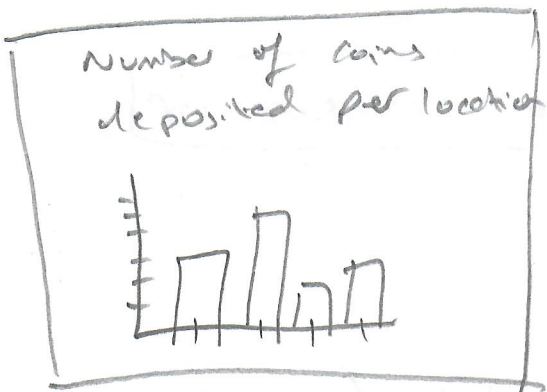 Number of coins
deposited per location